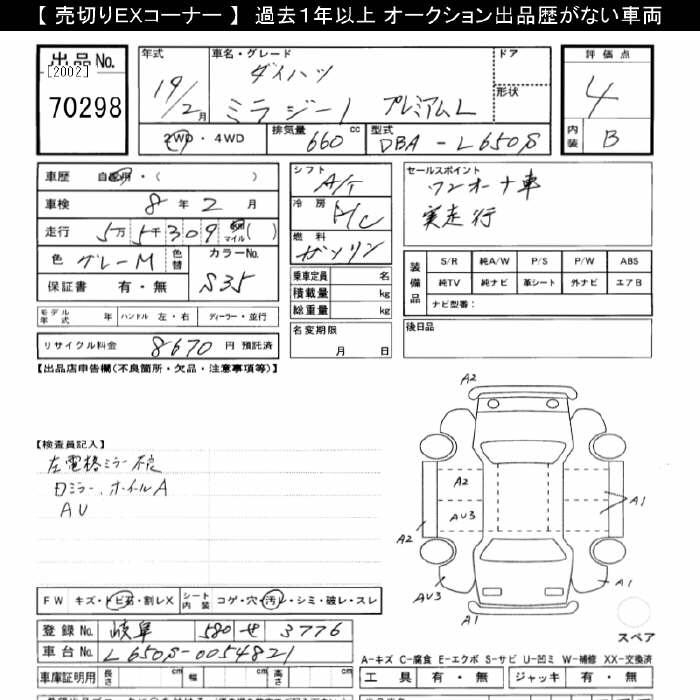 【 売切りEXコーナー 】 過去1年以上 オークション出品歴がない車両
出品No. [2002] 70298
年式 19/2月
車名・グレード ダイハツ
ミラジーノ プレミアムL
ドア
形状
評価点 4
内装 B
2WD・4WD 排気量 660 cc 型式 DBA-L650S
車歴 自家用・( )
車検 8年2月
走行 5万5千309 km マイル ( )
色 グレーM 色替 カラーNo. S35
保証書 有・無
モデル年式 年 ハンドル 左・右 ディーラー・並行
リサイクル料金 8670 円 預託済
シフト A/T
冷房 A/C
燃料 ガソリン
乗車定員 名
積載量 kg
総重量 kg
名変期限 月 日
セールスポイント
ワンオーナ車
実走行
装備品 S/R 純A/W P/S P/W ABS
純TV 純ナビ 革シート 外ナビ エアB
ナビ型番:
後日品
【出品店申告欄(不良箇所・欠品・注意事項等)】
【検査員記入】
左電格ミラー不良
ミラー、ホイールA
AU
A2
A2
AU3
A1
A2
AU3
A1
A1
FW キズ・トビ石・割レX シート内装 コゲ・穴・汚レ・シミ・破レ・スレ
登録No. 岐阜 580 せ 3776
車台No. L650S-0054821
車庫証明用 長さ cm 幅 cm 高さ cm
スペア
A-キズ C-腐食 E-エクボ S-サビ U-凹ミ W-補修 XX-交換済
工具 有・無 ジャッキ 有・無